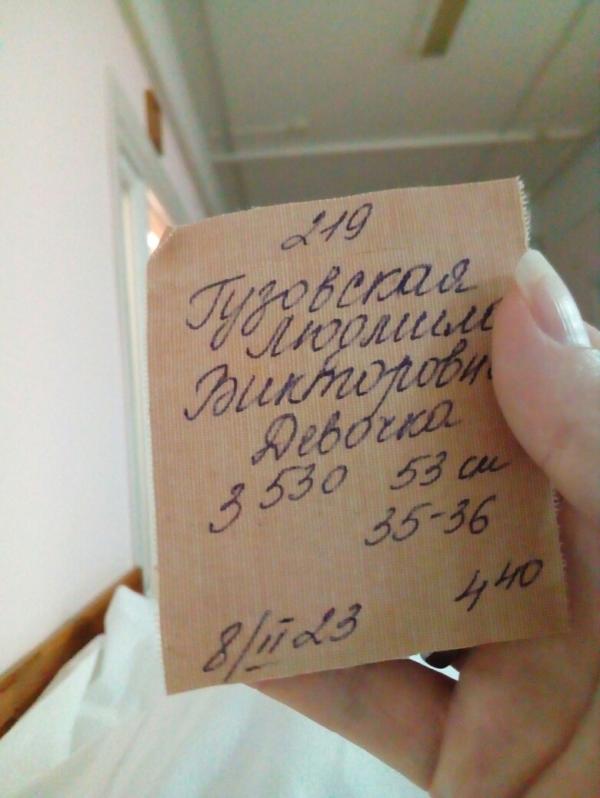 219
Гузовская
Людмила
Викторовна
Девочка
3530 53 см
35-36
4 40
8/II 23